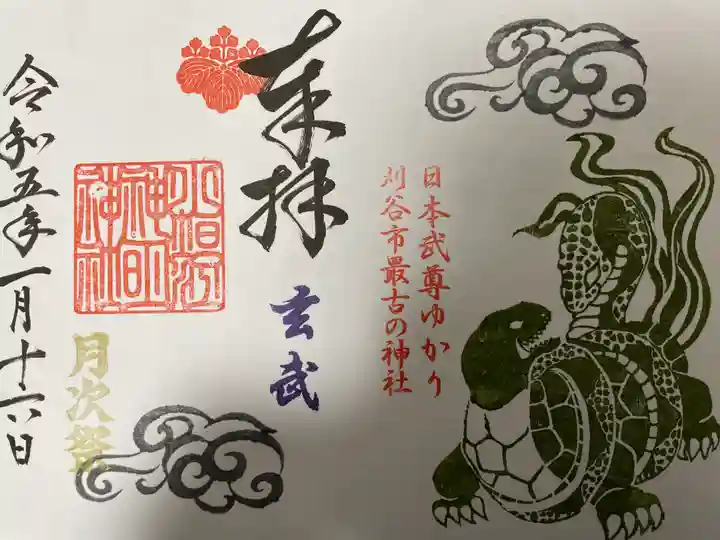 日本武尊ゆかり
刈谷市最古の神社
奉拝
玄武
月次祭
令和五年一月十六日